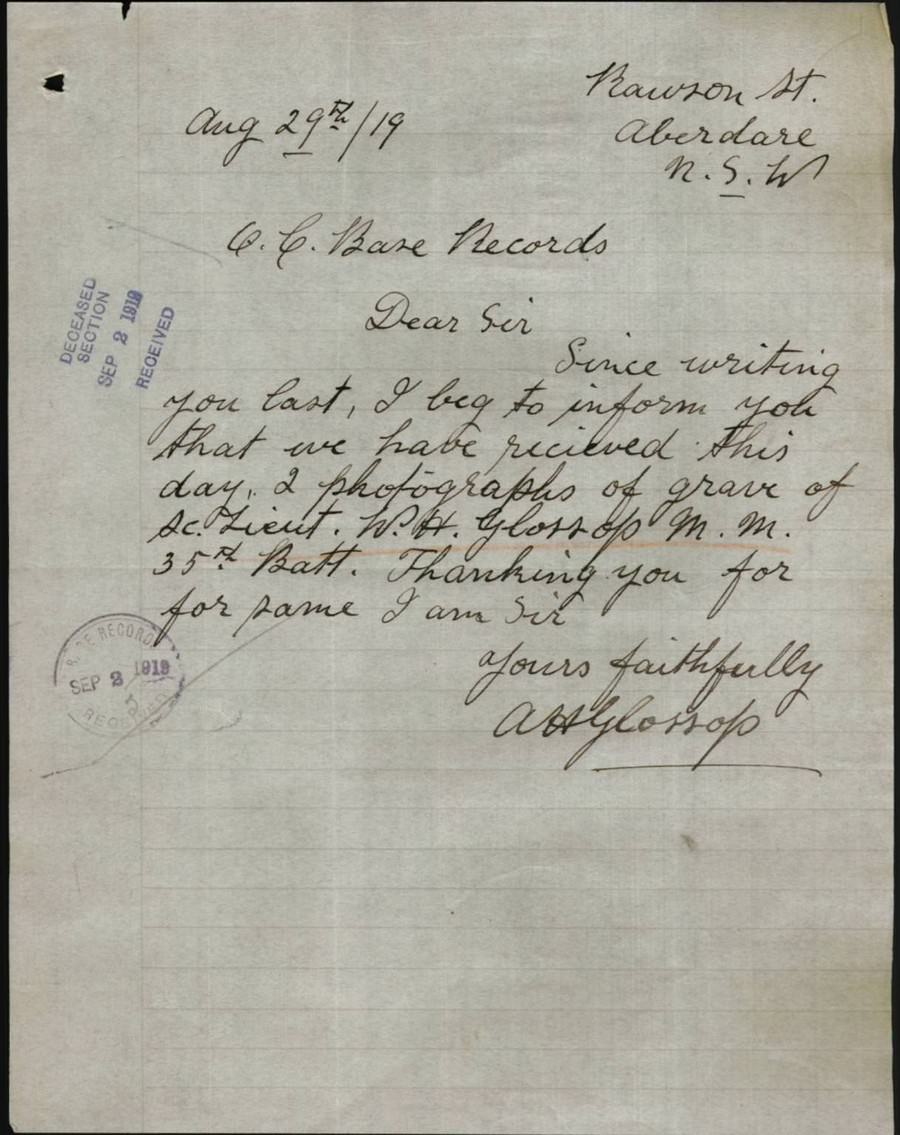 Rawson St.
Aug 29th/19
Aberdare
N.S.W
O.C. Base Records
Dear Sir
DECEASED
SECTION
SEP 2 1919
RECEIVED
Since writing
you last, I beg to inform you
that we have recieved this
day, 2 photographs of grave of
Sc. Lieut. W.H. Glossop M.M.
35th Batt. Thanking you for
for same I am Sir
BASE RECORDS
SEP 2 1919
RECEIVED
Yours faithfully
AHGlossop